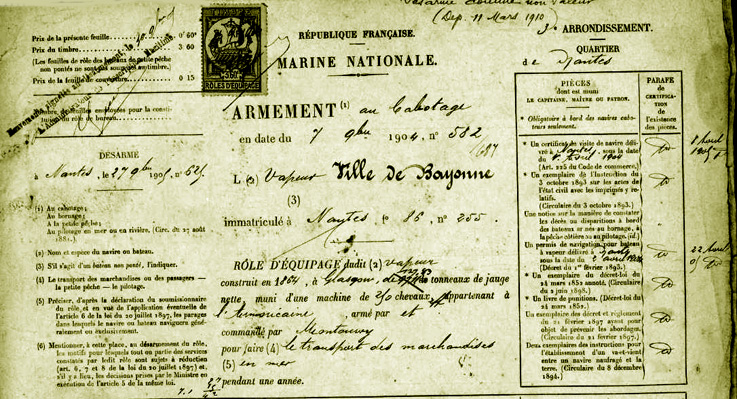 (Dep. 11 Mars 1910)
Prix de la présente feuille 0 60
Prix du timbre 3 60
(Les feuilles de rôle des bateaux de petite pêche
non pontés ne sont pas soumises au timbre.
Prix de la feuille de couverture 0 15
DÉSARMÉ
à Nantes, le 27 9bre 1905, n° 525
(1) Au cabotage;
Au bornage;
A la petite pêche;
Au pilotage en mer ou en rivière. (Circ. du 27 août
1881.)
(2) Nom et espèce du navire ou bateau.
(3) S'il s'agit d'un bateau non ponté, l'indiquer.
(4) Le transport des marchandises ou des passagers —
la petite pêche — le pilotage.
(5) Préciser, d'après la déclaration du soumissionnaire
du rôle, et en vue de l'application éventuelle de
l'article 6 de la loi du 20 juillet 1897, les parages
dans lesquels le navire ou bateau naviguera généra-
lement ou exclusivement.
(6) Mentionner, à cette place, au désarmement du rôle,
les motifs pour lesquels tout ou partie des services
constatés par ledit rôle sont sujets à réduction
(art. 6, 7 et 8 de la loi du 20 juillet 1897) et,
s'il y a lieu, les décisions prises par le Ministre en
exécution de l'article 5 de la même loi.
RÔLES D'ÉQUIPAGE
RÉPUBLIQUE FRANÇAISE.
MARINE NATIONALE.
ARMEMENT (1) au Cabotage
en date du 7 9bre 1904, n° 532
687
L (2) Vapeur Ville de Bayonne
(3)
immatriculé à Nantes f° 86, n° 255.
RÔLE D'ÉQUIPAGE dudit (2) Vapeur
construit en 1864, à Glasgow de tonneaux de jauge
nette muni d'une machine de 210 chevaux appartenant à
l'Armoricaine, armé par et
commandé par
pour faire (4) le transport des marchandises
(5) en mer
pendant une année.
3e ARRONDISSEMENT.
QUARTIER
de Nantes
PIÈCES
dont est muni
LE CAPITAINE, MAÎTRE OU PATRON.
* Obligatoire à bord des navires cabo-
teurs seulement.
PARAFE
de
CERTIFICA-
TION
de
l'existence
des pièces.
* Un certificat de visite de navire déli-
vré à Nantes, sous la date
du 8 Avril 1904
(Art. 225 du Code de commerce.)
* Un exemplaire de l'Instruction du
3 octobre 1893 sur les actes de
l'état civil avec les imprimés y re-
latifs.
(Circulaire du 3 octobre 1893.)
Une notice sur la manière de constater
les décès ou disparitions à bord des
bateaux armés au bornage, à la
pêche côtière ou au pilotage. (id.)
Un permis de navigation pour bateau
à vapeur délivré à Nantes
sous la date du
(Décret du 1er février 1893.)
* Un exemplaire du décret-loi du
24 mars 1852 annoté. (Circulaire du
2 juin 1898.)
* Un livre de punitions. (Décret-loi du
24 mars 1852.)
Un exemplaire des décret et règlement
du 21 février 1897 ayant pour
objet de prévenir les abordages.
(Circulaire du 21 février 1897.)
Deux exemplaires des instructions pour
l'établissement d'un va-et-vient
entre un navire naufragé et la
terre. (Circulaire du 8 décembre
1894.)
8 Avril
1905
22 Avril
05